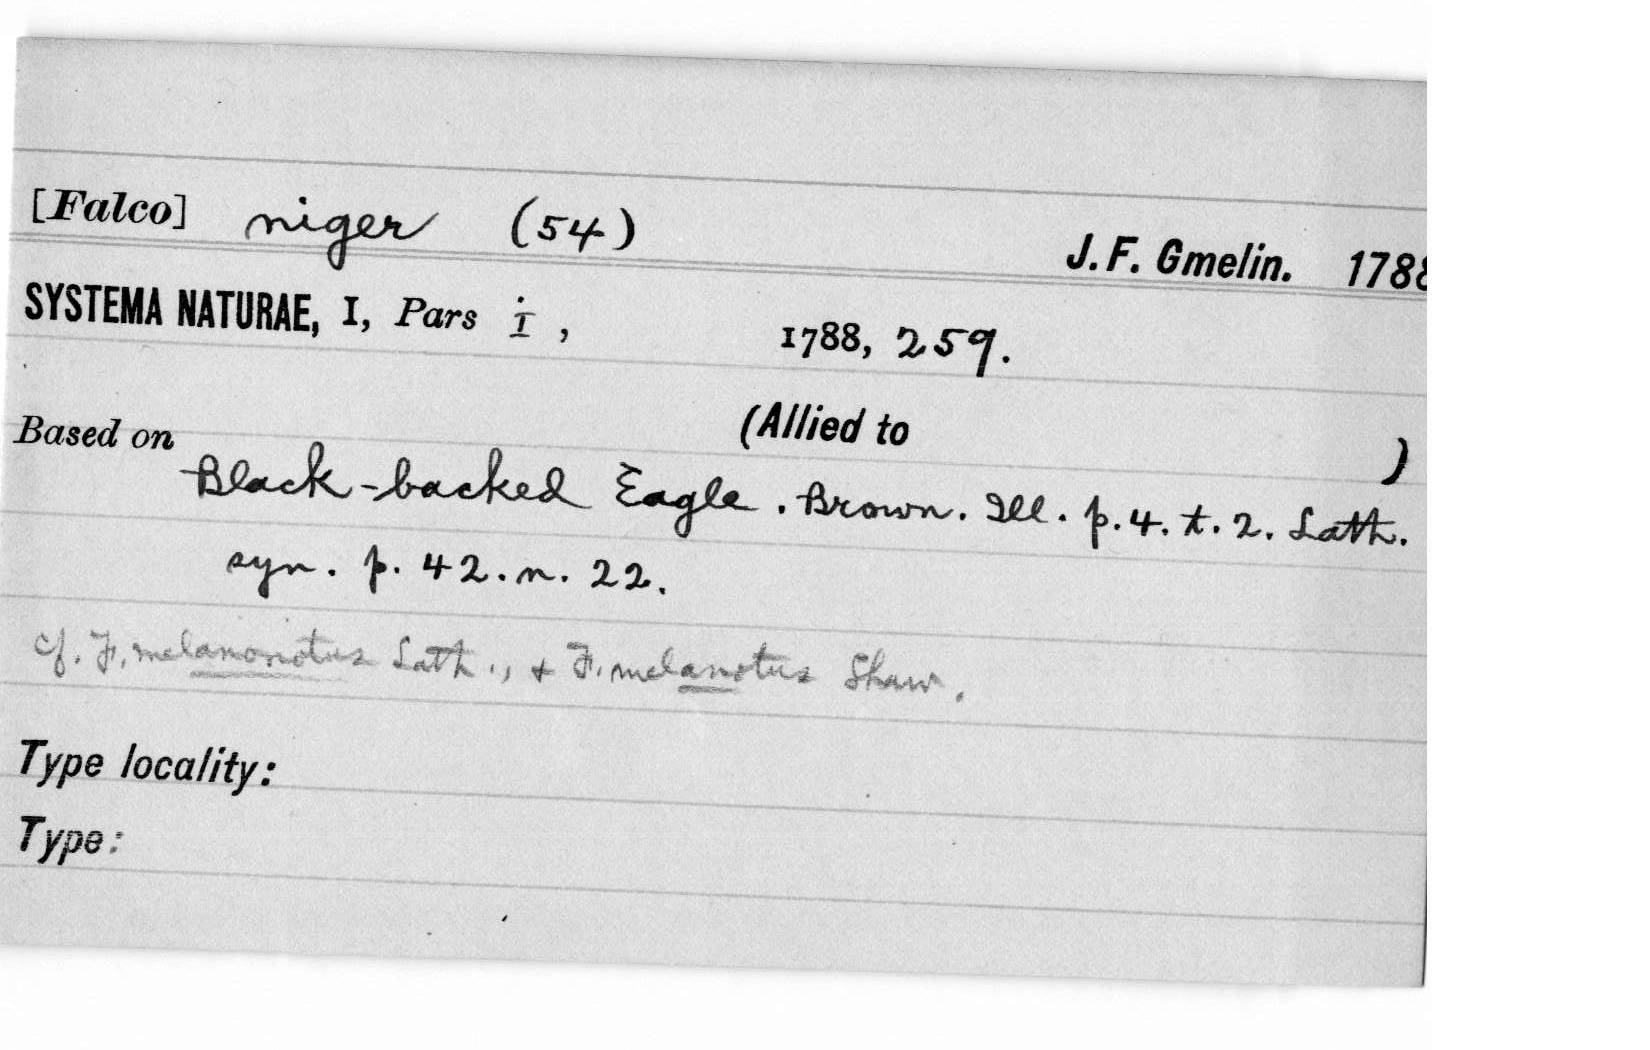 [Falco] niger (54)
J. F. Gmelin. 1788
SYSTEMA NATURAE, I, Pars i, 1788, 259.
(Allied to )
Based on
Black-backed Eagle. Brown. Ill. p. 4. t. 2. Lath.
syn. p. 42. n. 22.
cf. F. melanonotus Lath., + F. melanotus Shaw.
Type locality:
Type: